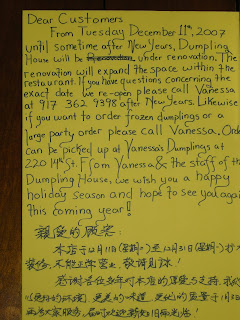 Dear Customers
From Tuesday December 11th, 2007
until sometime after New Years, Dumpling
House will be under renovation. The
renovation will expand the space within the
restaurant. If you have questions concerning the
exact date we re-open please call Vanessa
at 917 362 9398 after New Years. Likewise
if you want to order frozen dumplings or a
large party order please call Vanessa. Orders
can be picked up at Vanessa's Dumplings at
220 14th St. From Vanessa & the staff of the
Dumpling House, we wish you a happy
holiday season and hope to see you again
this coming year!
親愛的顧客:
本店于12月11日(星期二)至12月31日(星期一)
装修,不能正常营业,敬请见谅!
感谢各位多年对本店的